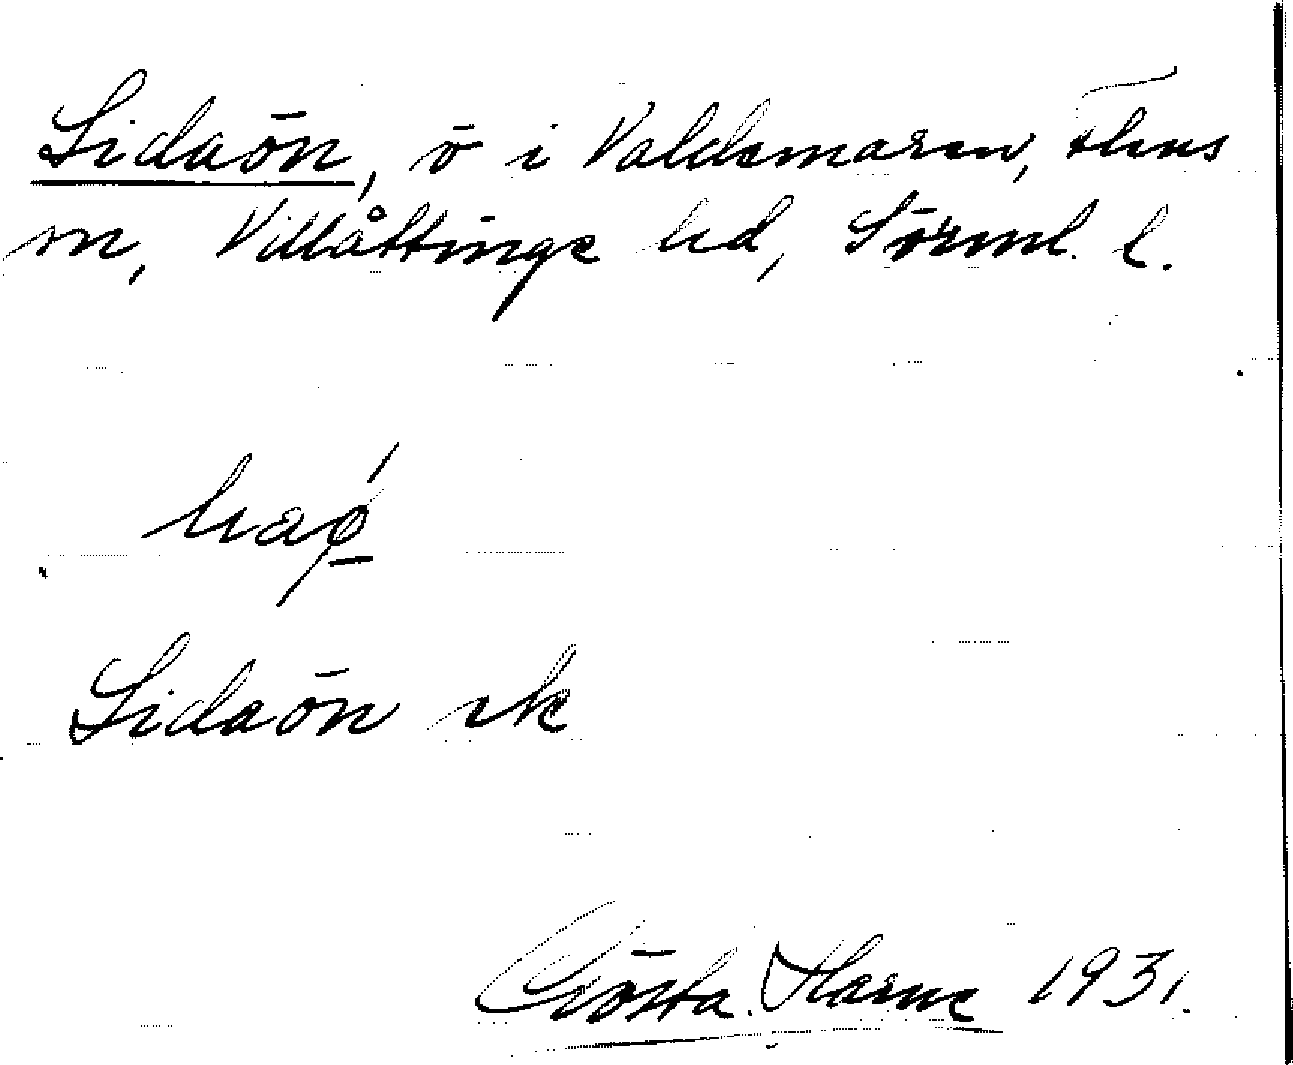 Lidaön, ö i Valdemaren, Flens
sn, Villåttinge hd, Sörml. l.
Lidaön sk
Gösta Harne 1931.